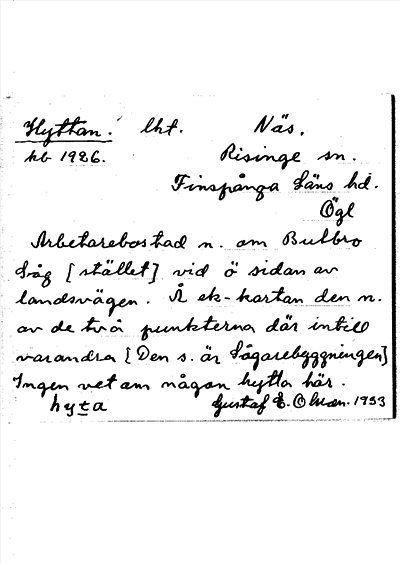 Hyttan. lht. Näs.
kb 1926. Risinge sn.
Finspånga Läns hd.
Ögl
Arbetarebostad n. om Butbro
Såg [stället] vid ö sidan av
landsvägen. Å ek-kartan den n.
av de två punkterna där intill
varandra [Den s. är Sågarebyggningen]
Ingen vet om någon hytta här.
hyta Gustaf E. Olsson. 1933